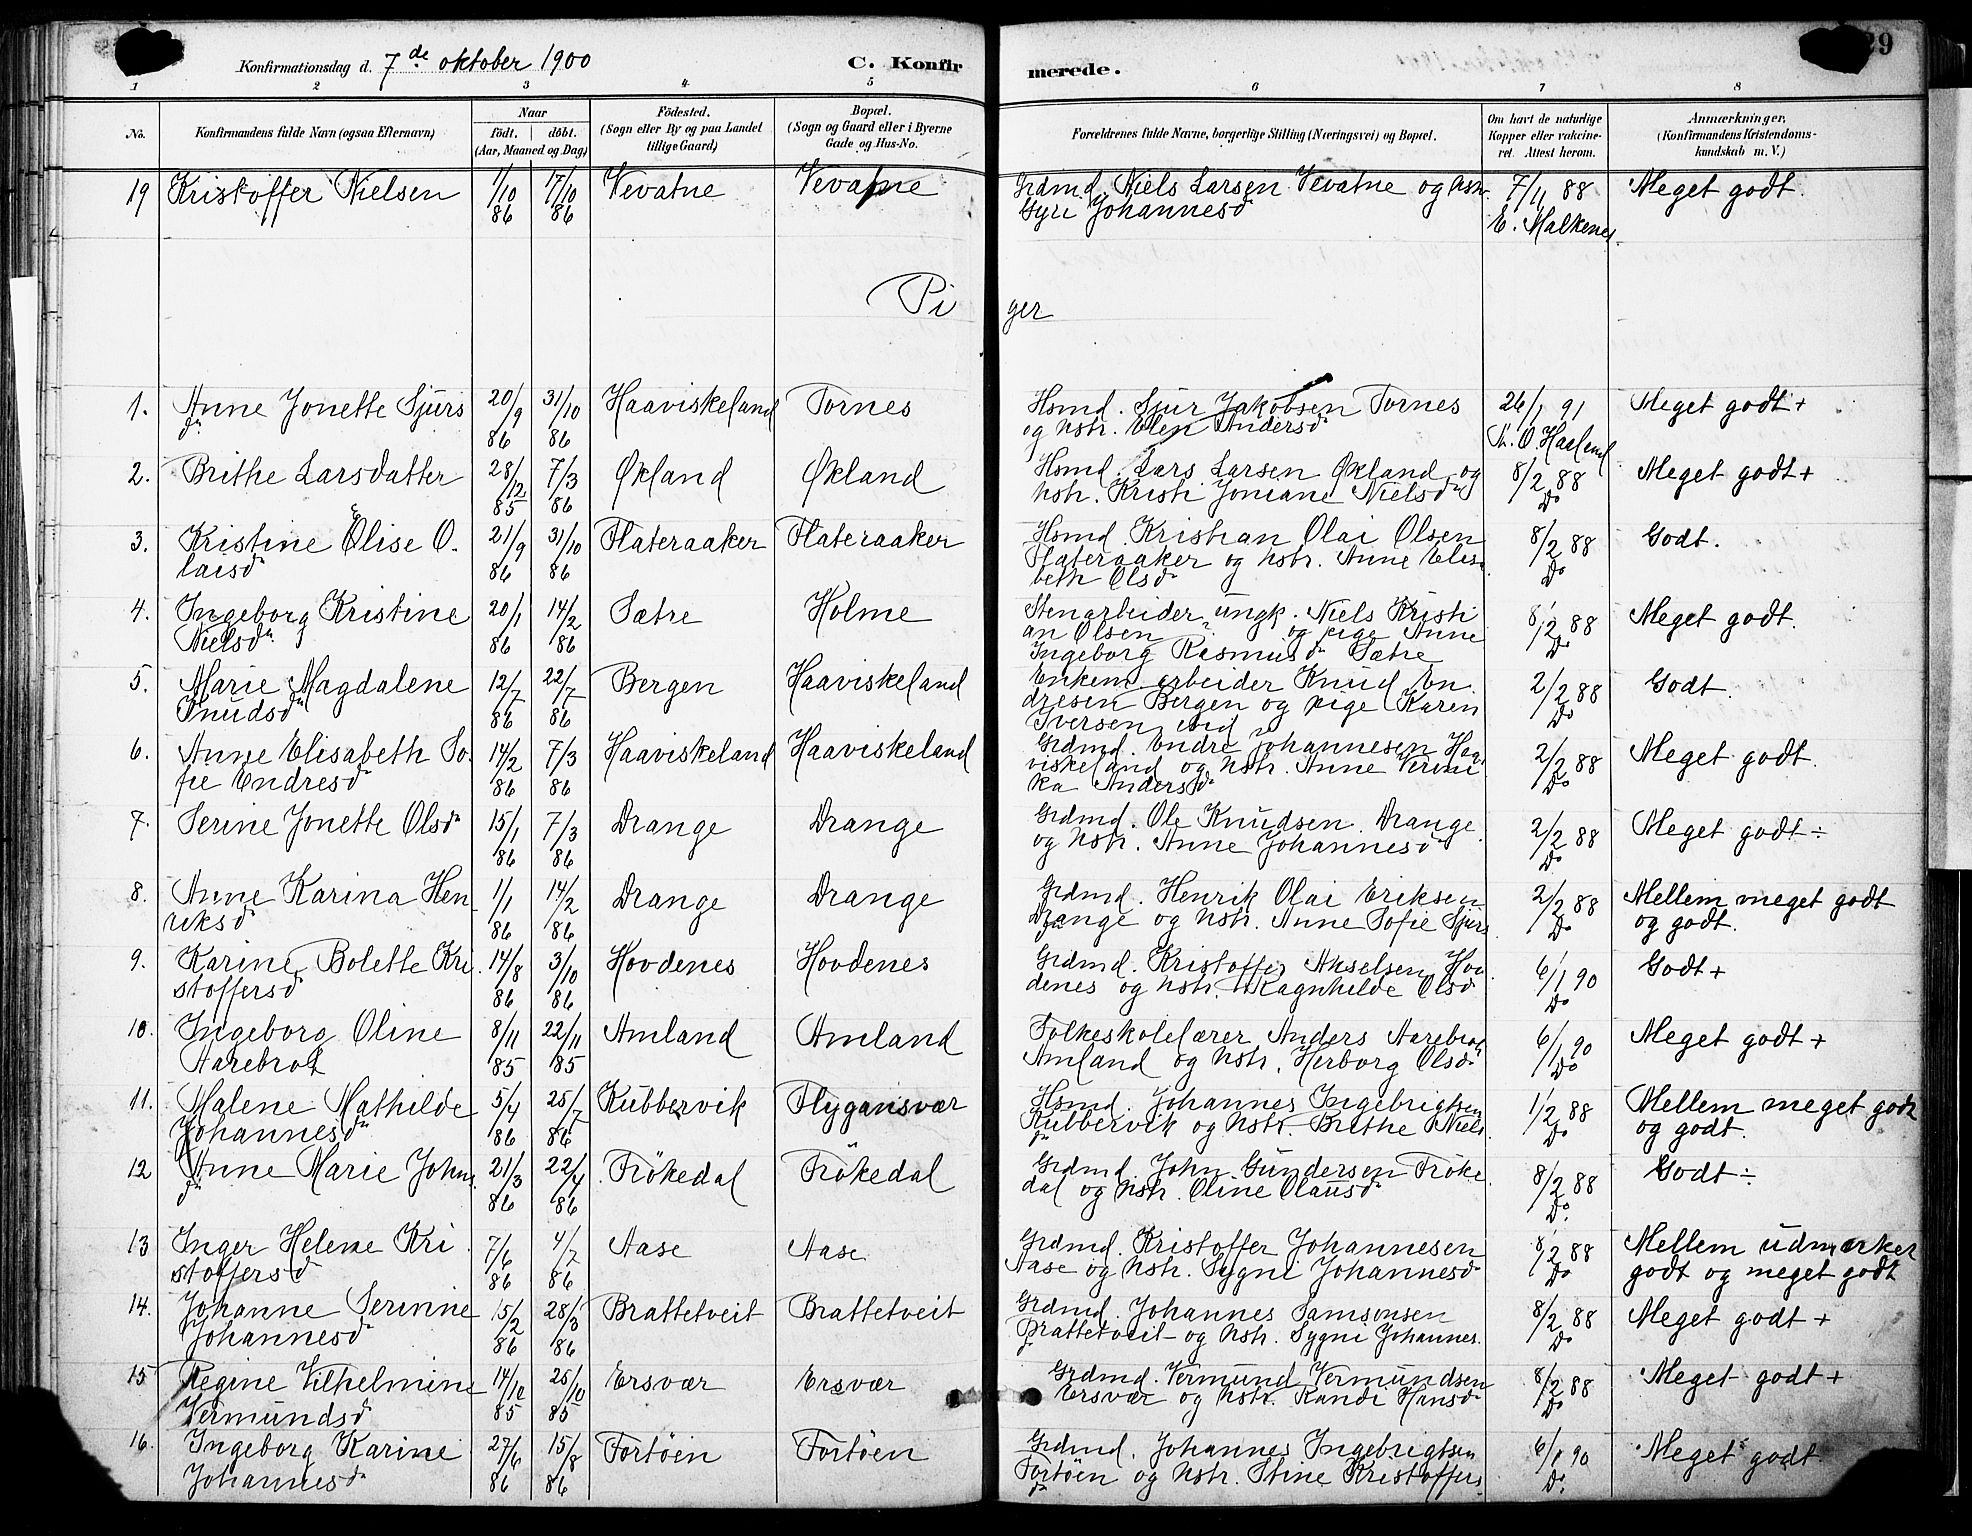 Konfirmationsdag d. 7de oktober 1900
C. Konfirmerede.
29
1 2 3 4 5 6 7 8
No.
Konfirmandens fulde Navn (ogsaa Efternavn)
Naar
født. døbt.
(Aar, Maaned og Dag)
Födested.
(Sogn eller By og paa Landet
tillige Gaard)
Bopæl.
(Sogn og Gaard eller i Byerne
Gade og Hus-No.
Forældrenes fulde Navne, borgerlige Stilling (Næringsvei) og Bopæl.
Om havt de naturlige
Kopper eller vakcine-
ret. Attest herom.
Anmærkninger,
(Konfirmandens Kristendoms-
kundskab m. V.)
19 Kristoffer Nielsen 1/10 86 17/10 86 Vevatne Vevatne Grdmd. Niels Larsen Vevatne og hstr. 7/11 88 Meget godt.
Gyri Johannesd E. Malkenes
Piger
1. Anne Jonette Sjurs 20/9 86 31/10 86 Haaviskeland Tornes Hsmd. Sjur Jakobsen Tornes 26/1 91 Meget godt+
dr og hstr. Elen Andersdr O. Haaland
2. Brithe Larsdatter 28/12 85 7/3 86 Økland Økland Hsmd. Lars Larsen Økland og 8/2 88 Meget godt+
hstr. Kristi Joniane Nielsdr Do
3. Kristine Elise O. 21/9 86 31/10 86 Flateraaker Flateraaker Hsmd. Kristian Olai Olsen 8/2 88 Godt.
laisdr Flateraaker og hstr. Anne Elisa
beth Olsdr Do
4. Ingeborg Kristine 20/1 86 14/2 86 Sætre Holme Stenarbeider, ungk. Niels Kristi 8/2 88 Meget godt.
Nielsdr an Olsen og pige Anne
Ingeborg Rasmusdr Sætre Do
5. Marie Magdalene 12/7 86 22/7 86 Bergen Haaviskeland Enkem. arbeider Knud En 2/2 88 Godt.
Knudsdr dresen Bergen og pige Karen
Iversen ibid Do
6. Anne Elisabeth So 14/2 86 7/3 86 Haaviskeland Haaviskeland Grdmd. Endre Johannesen Haa 2/2 88 Meget godt.
fie Endresdr viskeland og hstr. Anne Veroni
ka Andersdr Do
7. Serine Jonette Olsdr 15/1 86 7/3 86 Drange Drange Grdmd. Ole Knudsen Drange 2/2 88 Meget godt÷
og hstr. Anne Johannesdr Do
8. Anne Karina Hen 1/1 86 14/2 86 Drange Drange Grdmd. Henrik Olai Eriksen 2/2 88 Mellem meget godt
riksdr Drange og hstr. Anne Sofie Sjurs dr Do og godt.
9. Karine Bolette Kri 14/8 86 3/10 86 Hovdenes Hovdenes Grdmd. Kristoffer Akselsen Hov 6/1 90 Godt+
stoffersdr denes og hstr. Ragnhilde Olsdr Do
10. Ingeborg Oline 8/11 85 22/11 85 Amland Amland Folkeskolelærer Anders Aarebrot 6/1 90 Meget godt+
Aarebrot Amland og hstr. Herborg Olsdr Do
11. Malene Mathilde 5/4 86 25/7 86 Kubbervik Flygansvær Hsmd. Johannes Ingebrigtsen 1/2 88 Mellem meget godt
Johannesdr Kubbervik og hstr. Brithe Niels dr Do og godt.
12 Anne Marie Johns 21/3 86 22/4 86 Frökedal Frökedal Grdmd. John Gundersen Fröke 8/2 88 Godt÷
dr dal og hstr. Oline Olausdr Do
13 Inger Helene Kri 7/6 86 4/7 86 Aase Aase Grdmd. Kristoffer Johannesen 8/2 88 Mellem udmærket
stoffersdr Aase og hstr. Sygni Johannesdr Do godt og meget godt
14. Johanne Serinne 15/2 86 28/3 86 Brattetveit Brattetveit Grdmd. Johannes Samsonsen 8/2 88 Meget godt+
Johannesdr Brattetveit og hstr. Sygni Johannes dr Do
15 Regine Vilhelmine 14/10 85 25/10 85 Ersvær Ersvær Grdmd. Vermund Vermundsen 8/2 88 Meget godt+
Vermundsdr Ersvær og hstr. Randi Hansdr Do
16. Ingeborg Karine 27/6 86 15/8 86 Fortöen Fortöen Grdmd. Johannes Ingebrigtsen 6/1 90 Meget godt.
Johannesdr Fortöen og hstr. Stine Kristoffers dr Do